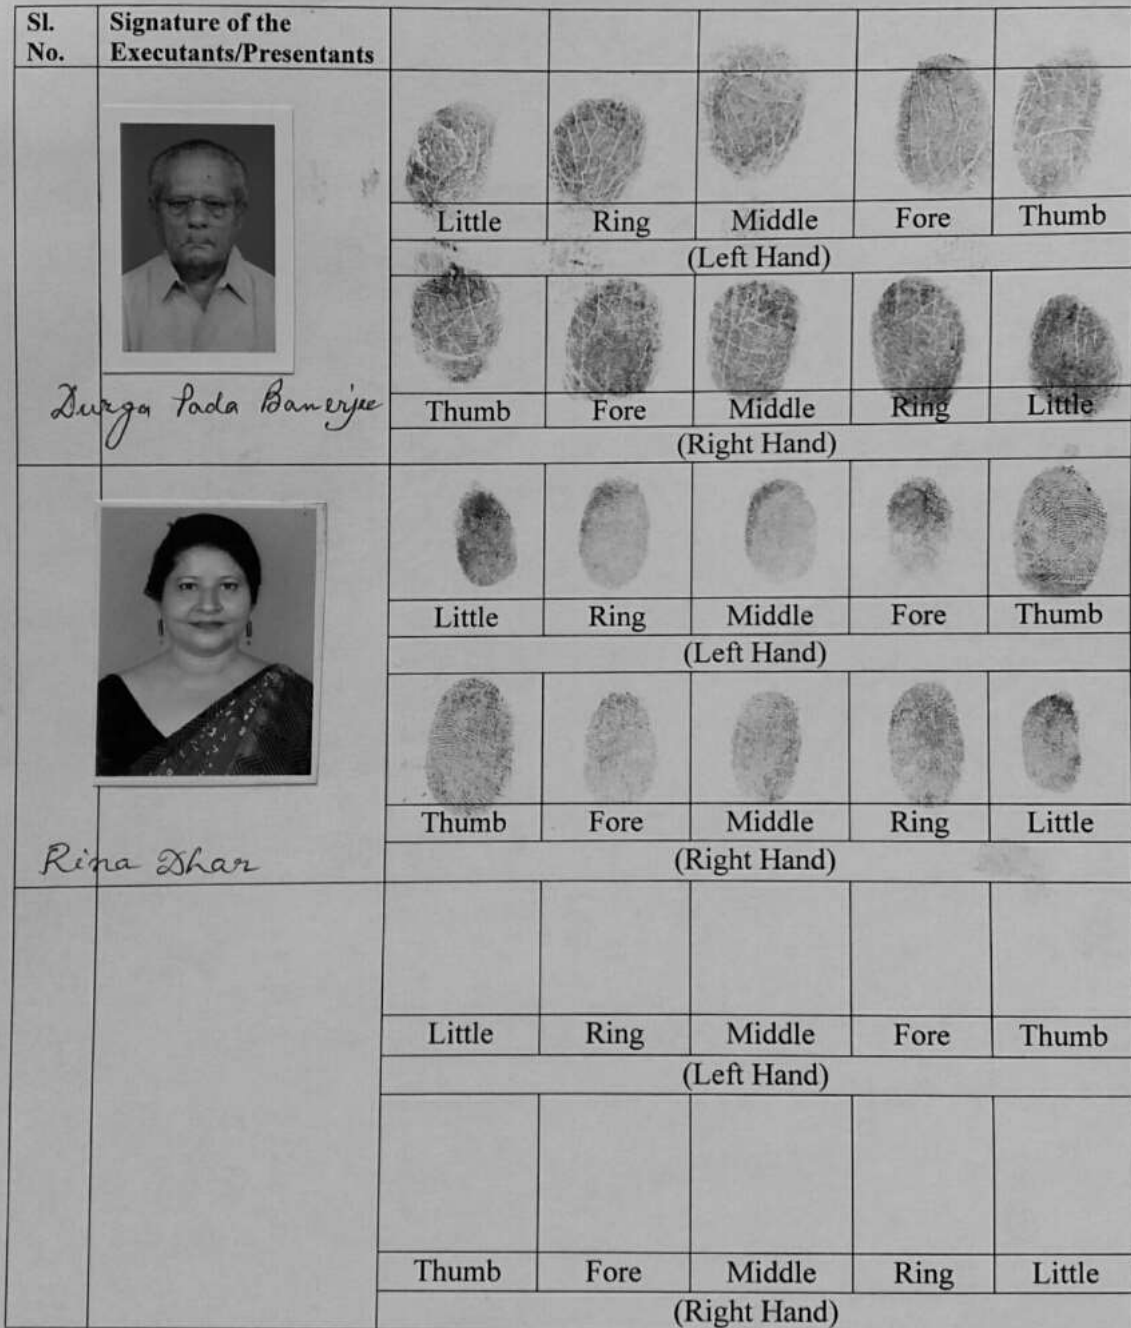 Sl. No. Signature of the Executants/Presentants
Little Ring Middle Fore Thumb
(Left Hand)
Durga Pada Banerjee
Thumb Fore Middle Ring Little
(Right Hand)
Little Ring Middle Fore Thumb
(Left Hand)
Thumb Fore Middle Ring Little
Rina Dhar
(Right Hand)
Little Ring Middle Fore Thumb
(Left Hand)
Thumb Fore Middle Ring Little
(Right Hand)